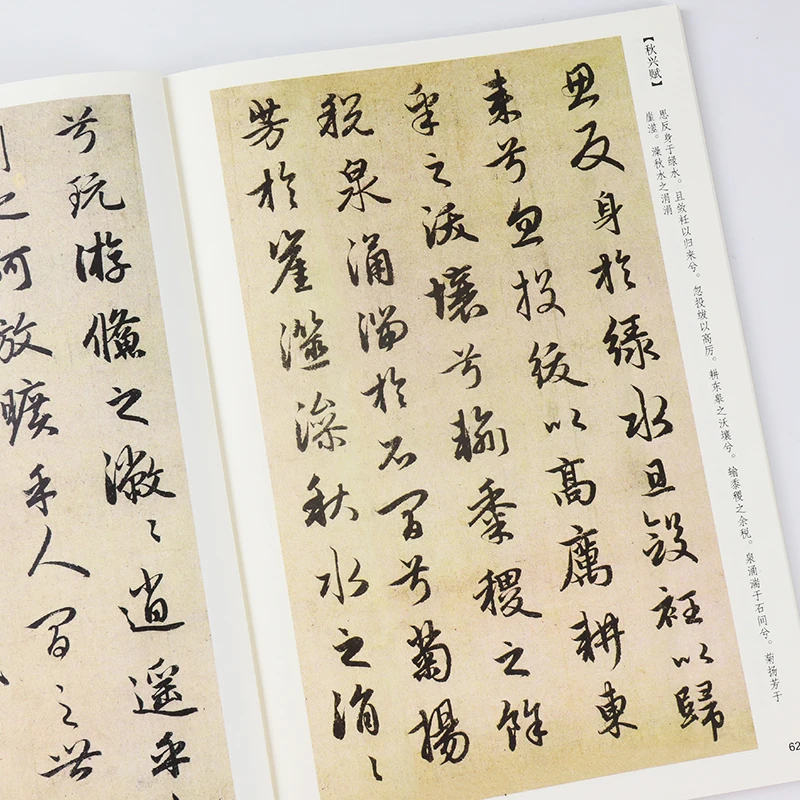 【秋兴赋】
思反身于绿水。且敛衽以归来兮。忽投绂以高厉。耕东皋之沃壤兮。输黍稷之余税。泉涌湍于石间兮。菊扬芳于
崖澨。澡秋水之涓涓
思反身於緑水且斂衽以歸
来兮忽投紱以高厲耕東
皋之沃壤兮輸黍稷之餘
税泉涌湍於石間兮菊揚
芳於崖澨澡秋水之涓〻
兮玩游鯈之潎〻逍遥乎
之阿放曠乎人間之世
62